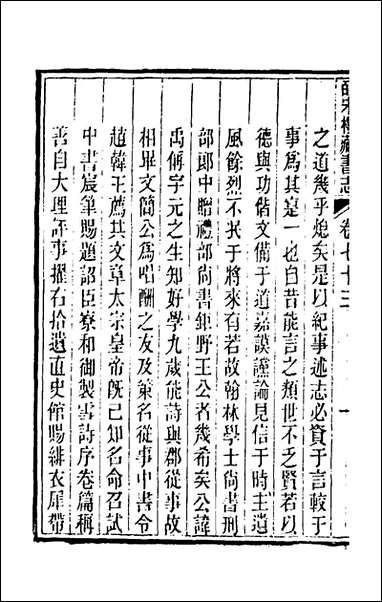 皕宋樓藏書志 卷七十三 一
之道幾乎熄矣是以紀事述志必資于言較于
事為其寔一也自昔能言之類世不乏賢若以
德與功偕文備于道嘉謨讜論見信于時主遺
風餘烈不泯于將來有若故翰林學士尚書刑
部郎中贈禮部尚書鉅野王公者幾希矣公諱
禹偁字元之生知好學九歲能詩與郡從事故
相畢文簡公為唱酬之友及策名從事中書令
趙韓王薦其文章太宗皇帝旣已知名命召試
中書宸筆賜題詔臣寮和御製雪詩序卷篇稱
善自大理評事擢右拾遺直史館賜緋衣犀帶